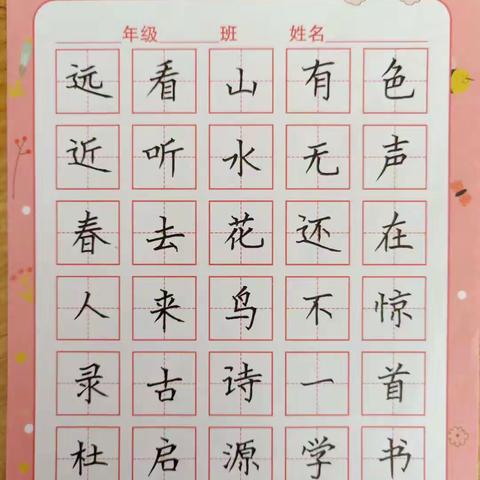 年级 班 姓名
远看山有色
近听水无声
春去花还在
人来鸟不惊
录古诗一首
杜启源学书